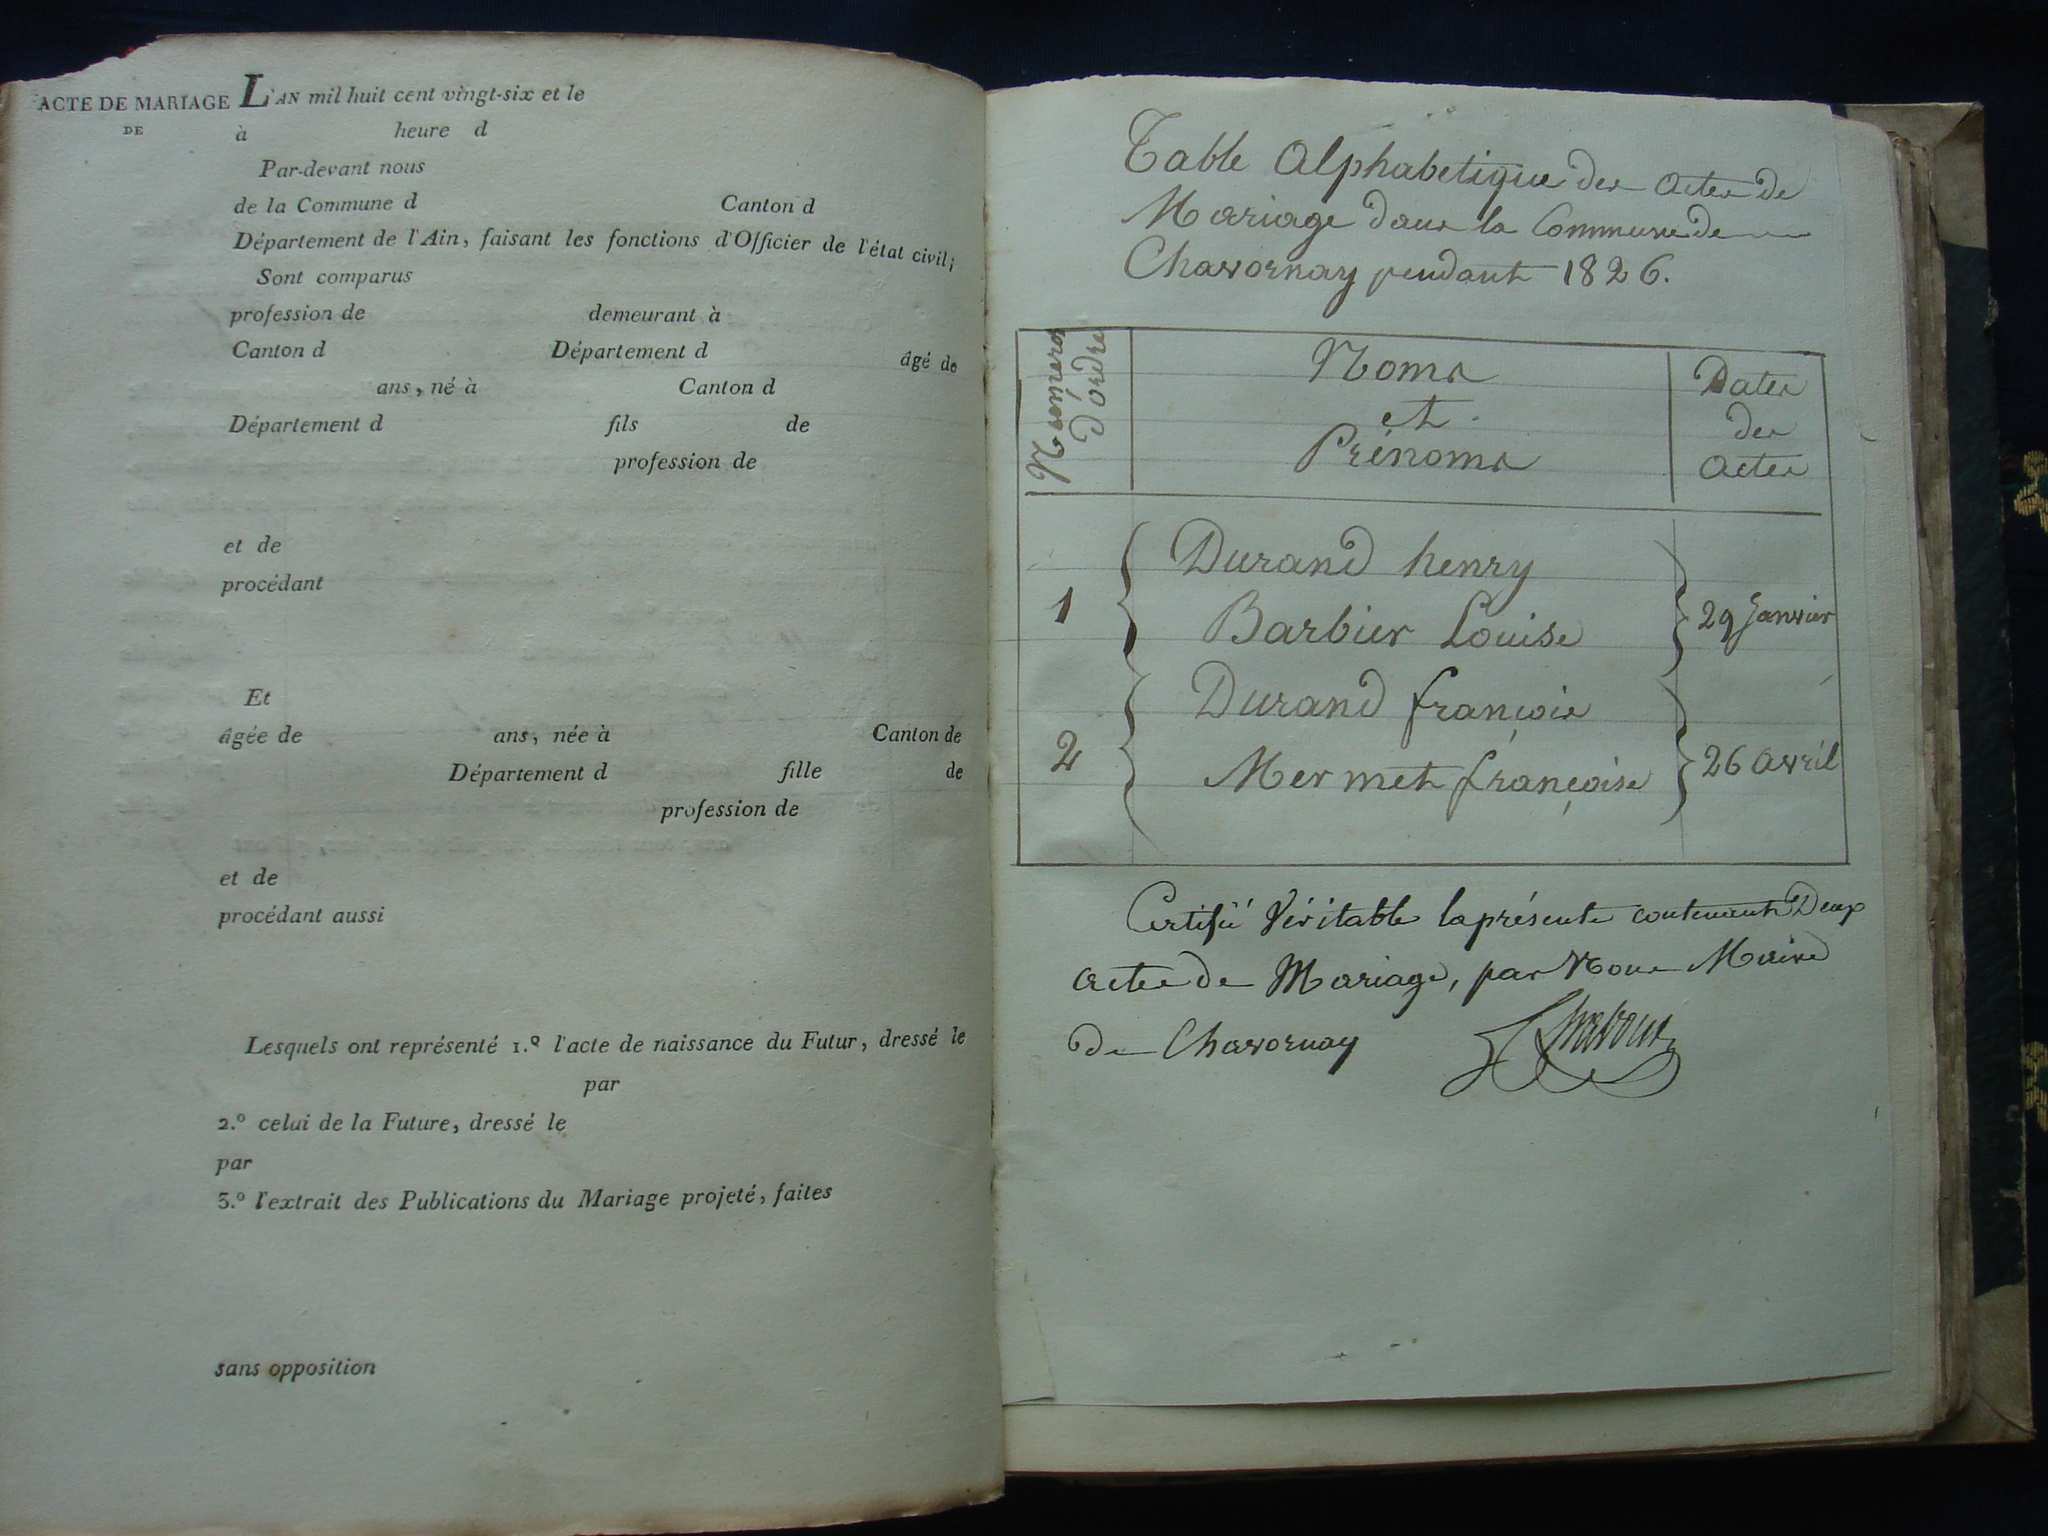 ACTE DE MARIAGE
DE
L'AN mil huit cent vingt-six et le
à heure d
Par-devant nous
de la Commune d Canton d
Département de l'Ain, faisant les fonctions d'Officier de l'état civil;
Sont comparus
profession de demeurant à
Canton d Département d âgé de
ans, né à Canton d
Département d fils de
profession de
et de
procédant
Et
âgée de ans, née à Canton de
Département d fille de
profession de
et de
procédant aussi
Lesquels ont représenté 1.º l'acte de naissance du Futur, dressé le
par
2.º celui de la Future, dressé le
par
3.º l'extrait des Publications du Mariage projeté, faites
sans opposition
Table Alphabetique des Actes de
Mariage dans la Commune de
Chavornay pendant 1826.
Numéros
d'ordre
Noms
et
Prénoms
Dates
des
Actes
Durand henry
1 Barbier Louise 29 Janvier
Durand françois
2 Mermet françoise 26 avril
Certifié Véritable la présente contenant Deux
actes de Mariage, par Nous Maire
de Chavornay